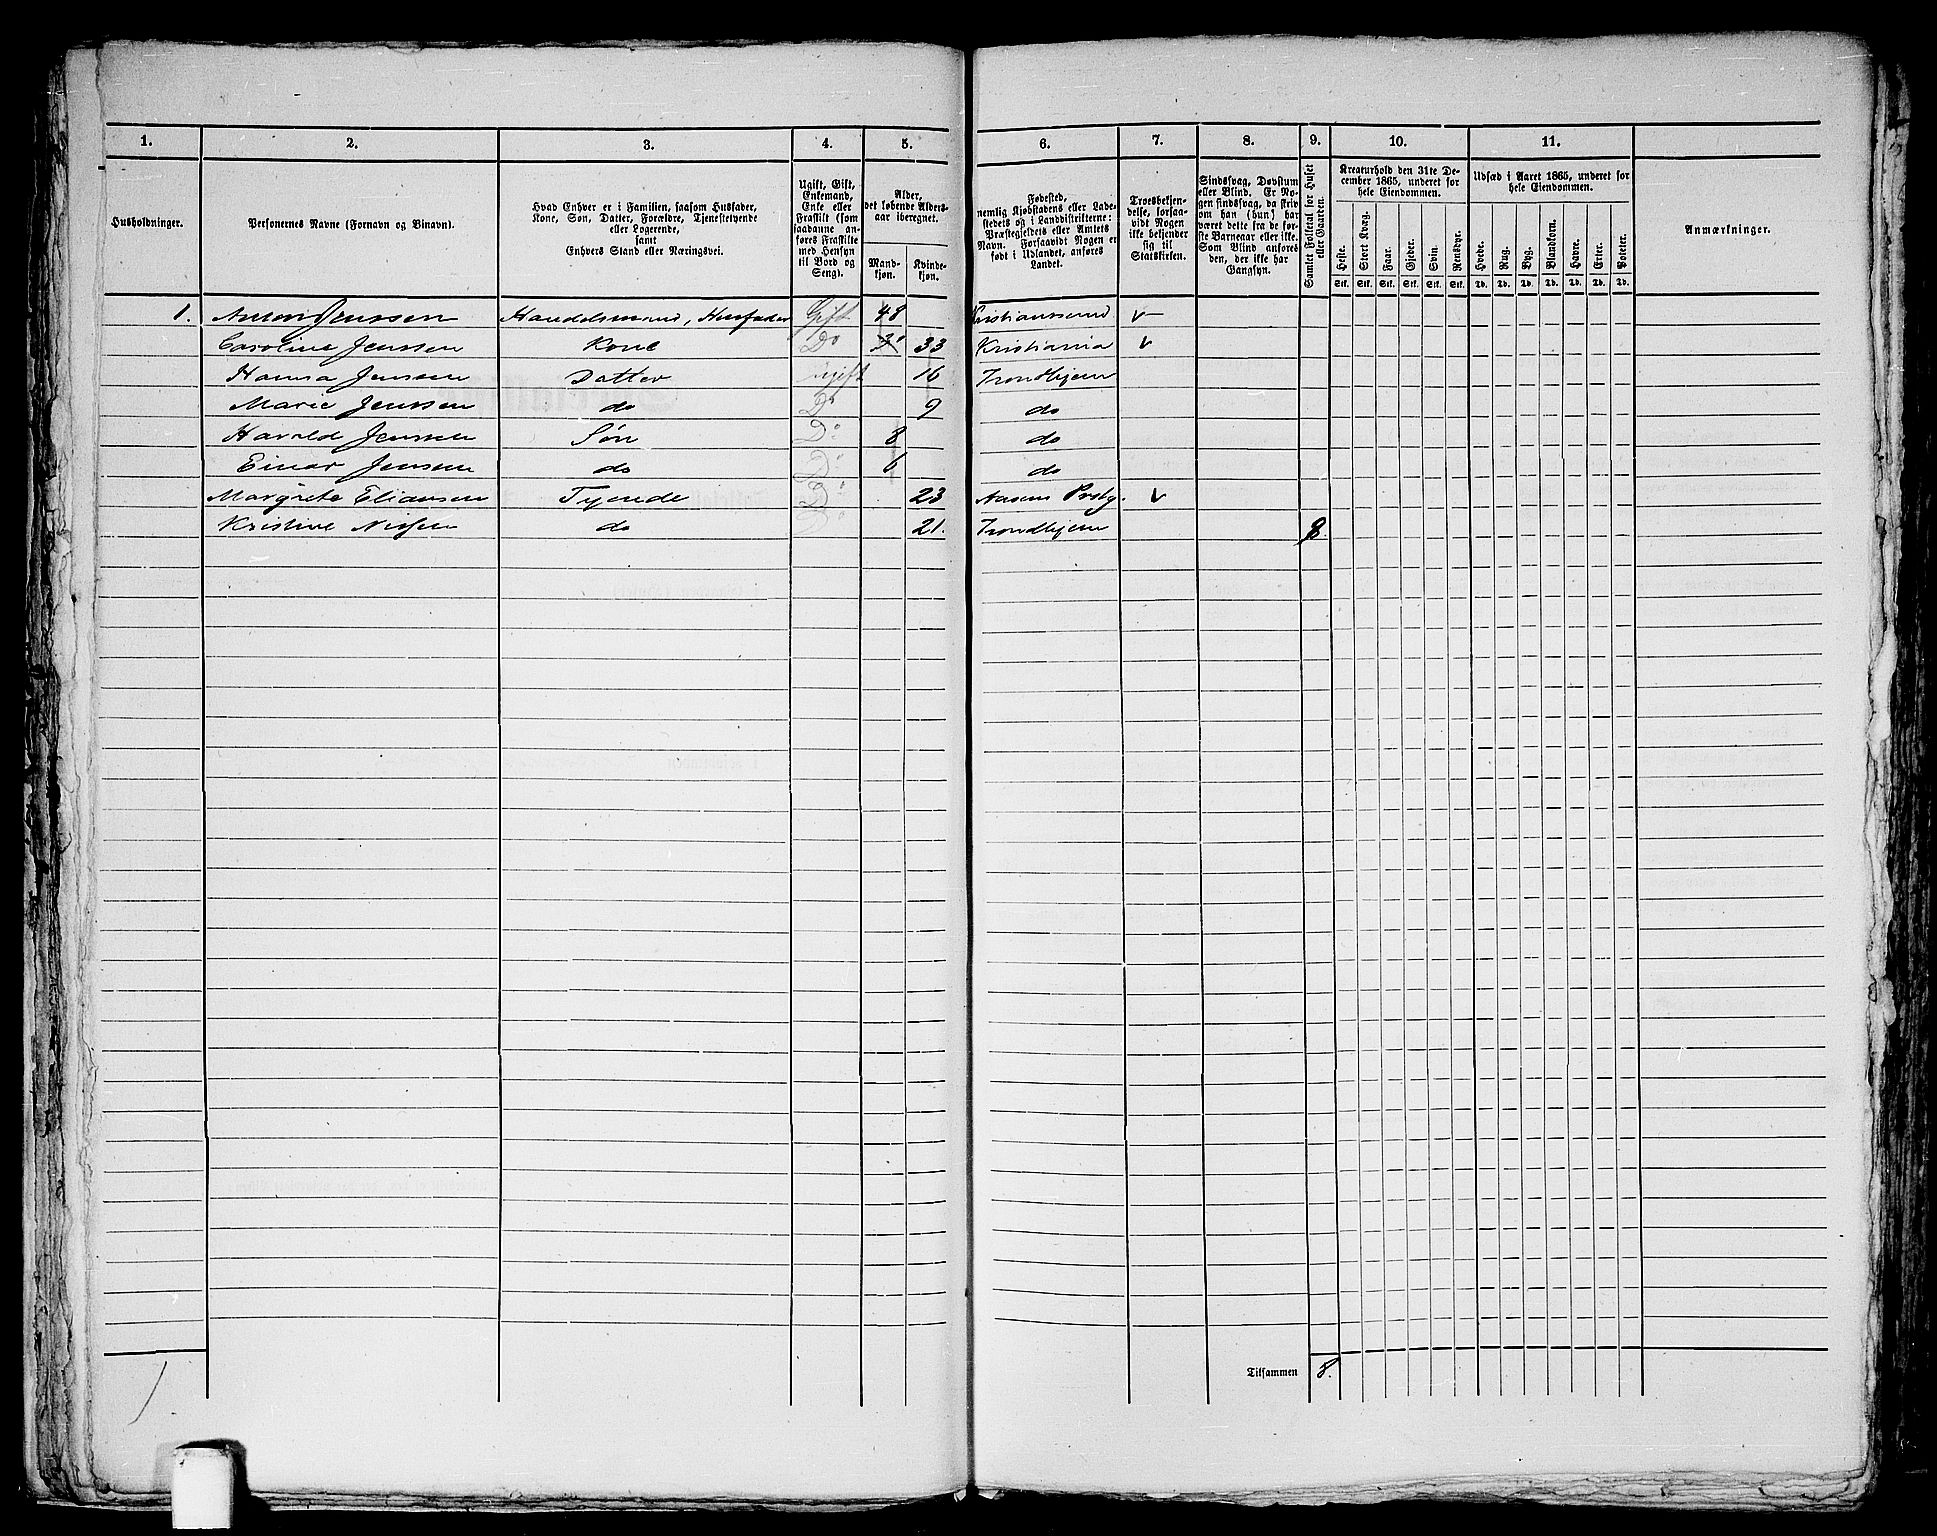 1. 2. 3. 4. 5. 6. 7. 8. 9. 10. 11.
Husholdninger.
Personernes Navne (Fornavn og Binavn).
Hvad Enhver er i Familien, saasom Husfader,
Kone, Søn, Datter, Forældre, Tjenestetyende
eller Logerende,
samt
Enhvers Stand eller Næringsvei.
Ugift, Gift,
Enkemand,
Enke eller
Fraskilt (som
saadanne an-
føres Fraskilte
med Hensyn
til Bord og
Seng).
Alder,
det løbende Alders-
aar iberegnet.
Mand-
kjøn.
Kvinde-
kjøn.
Fødested,
nemlig Kjøbstadens eller Lade-
stedets og i Landdistrikterne:
Præstegjeldets eller Amtets
Navn. Forsaavidt Nogen er
født i Udlandet, anføres
Landet.
Troesbekjen-
delse, forsaa-
vidt Nogen
ikke bekjender
sig til
Statskirken.
Sindssvag, Døvstum
eller Blind. Er No-
gen sindssvag, da skriv
om han (hun) har
været dette fra de før-
ste Barneaar eller ikke.
Som Blind anføres
den, der ikke har
Gangsyn.
Samlet Folketal for Huset
eller Gaarden.
Kreaturhold den 31te De-
cember 1865, underet for
hele Eiendommen.
Heste. Stort Kvæg. Faar. Gjeder. Svin. Rensdyr.
Stk. Stk. Stk. Stk. Stk. Stk.
Udsæd i Aaret 1865, underet for
hele Eiendommen.
Hvede. Rug. Byg. Blandkorn. Havre. Erter. Poteter.
Td. Td. Td. Td. Td. Td. Td.
Anmærkninger.
1. Anton Jenssen Handelsmand, Husfader Gift 48 Kristianssund v
Caroline Jenssen Kone Do 33 Kristiania v
Hanna Jenssen Datter ugift 16 Trondhjem
Marie Jenssen do Do 9 do
Harald Jenssen Søn Do 8 do
Einar Jensen do Do 6 do
Margrete Eliansen Tyende Do 23 v
Kristine Nissen do Do 21. Trondhjem 8.
Tilsammen 8.